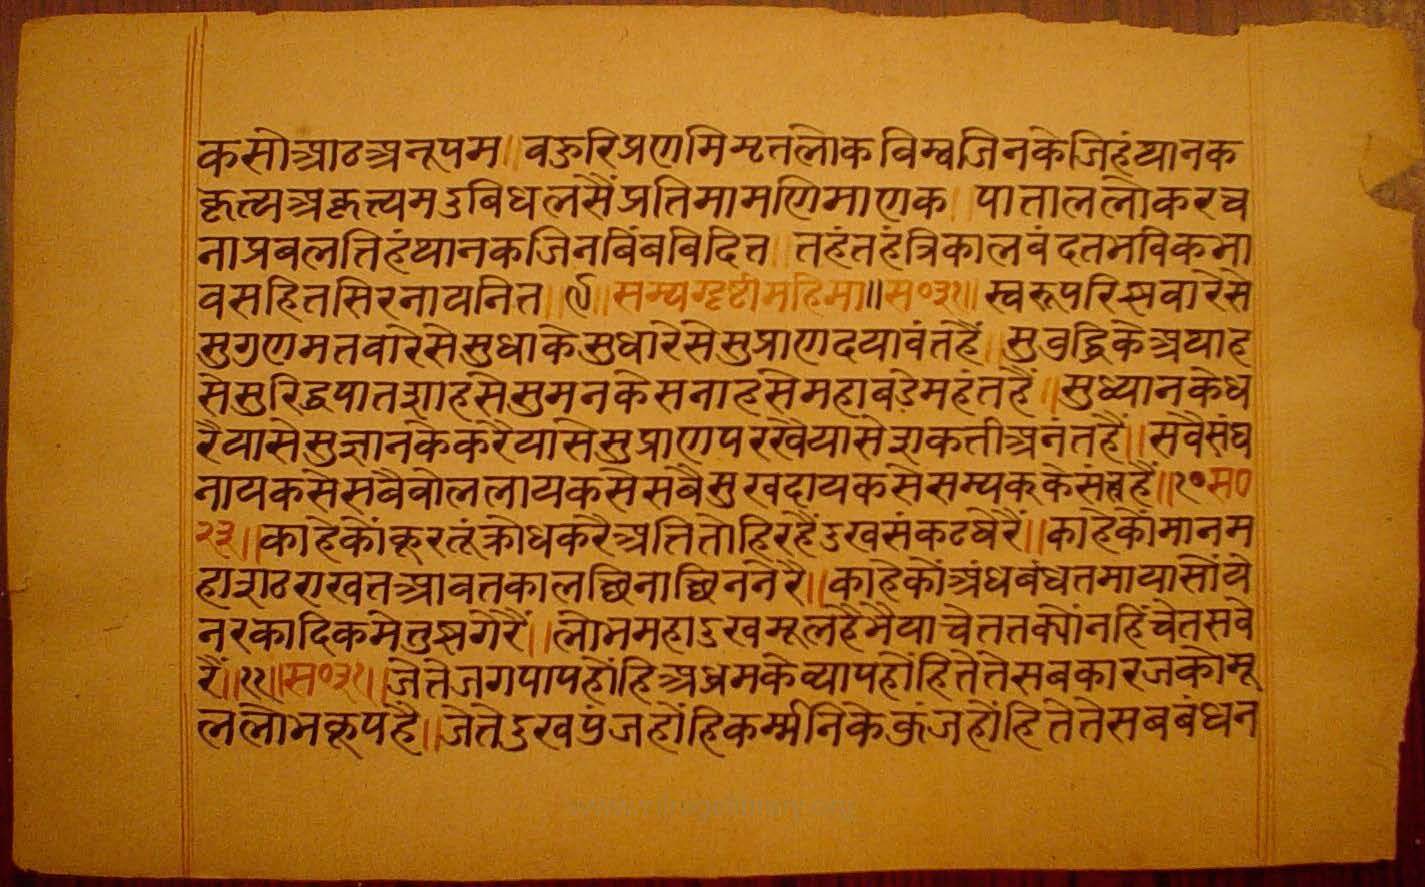 कसोआठअनूपम॥वङरिप्रणमिमृतलोकविम्बजिनकेजिहंथानक
कृत्यअकृत्यमदुबिधलसैंप्रतिमामणिमाणक॥पातालालोकरच
नाप्रबलतिहंथानकजिनबिंबबिदित॥तहंतहंत्रिकालबंदतभविकभा
वसहितसिरनायनित॥९॥सम्यग्दृष्टीमहिमा॥स०३१॥स्वरूपरिझवारेसे
सुगुणमतवारेसेसुधाकेसुधारेसेसुप्राणदयावंतहैं॥सुबुद्धिकेअथाह
सेसुरिद्धपातशाहसेसुमनकेसनाहसेमहाबडेमहंतहैं॥सुध्यानकेध
रैयासेसुज्ञानकेकरैयासेसुप्राणपरखैयासेशकतीअनंतहैं॥सवैसंघ
नायकसेसबैबोललायकसेसबैसुखदायकसेसम्यककेसंतहैं॥१०स०
२३॥काहेकोंकूरतूंक्रोधकरैअतितोहिरहैंदुखसंकटघेरैं॥काहेकोंमानम
हाशठराखतआवतकालछिनाछिननेरै॥काहेकोंअंधबंधतमायासौंये
नरकादिकमेतुझगेरैं॥लोभमहादुखमूलहैभैयाचेततक्योंनहिंचेतसवे
रैं॥११॥स०३१॥जेतेजगपापहोंहिअध्रमकेव्यापहोहितेतेसबकारजकोमू
ललोभकूपहै॥जेतेदुखपुंजहोंहिकर्म्मनिकेकुंजहोंहितेतेसबबंधन